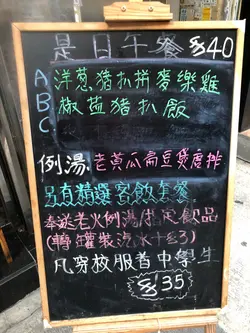 是日午餐 $40
A. 洋葱猪扒拼麥樂雞
B. 椒盐猪扒飯
C.
例湯: 老黄瓜扁豆煲唐排
另有精選客飯套餐
奉送老火例湯/指定飲品
(轉罐裝汽水十$3)
凡穿校服首中學生
$35